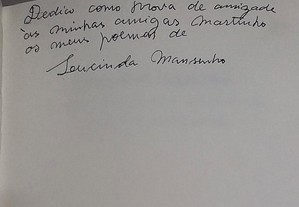 Dedico como prova de amizade
às minhas amigas Martinho
os meus poemas de
Loucinda Mansinho